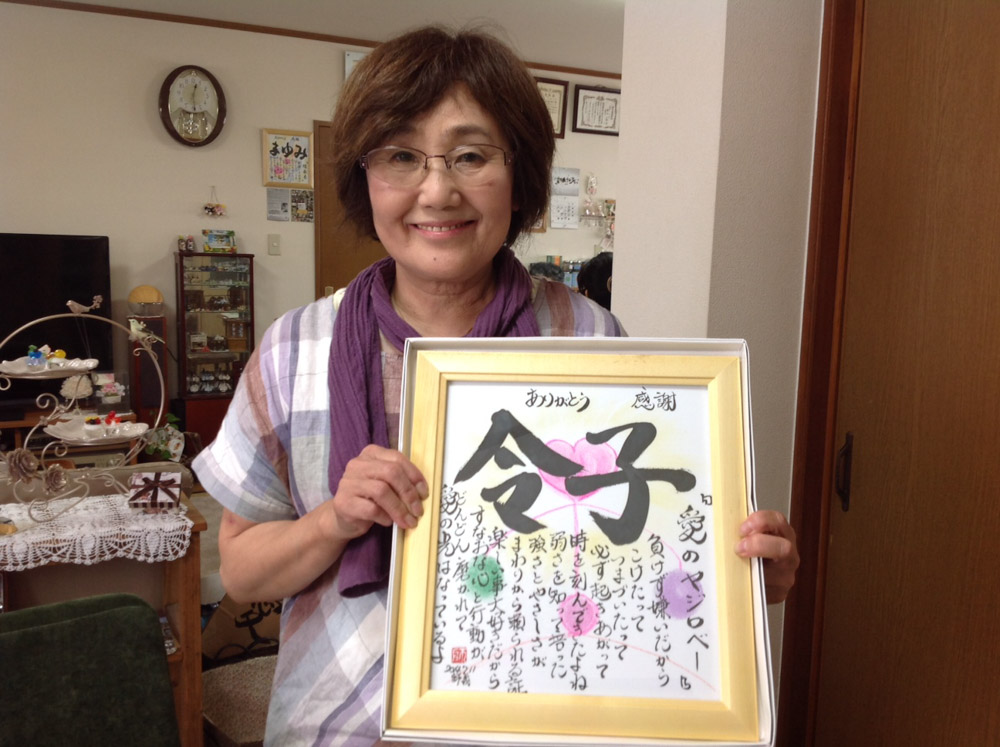 まゆみ
ありがとう 感謝
令子
「愛のヤジロベー」
負けず嫌いだから
こけたって
つまづいたって
必ず起きあがって
時を刻んできたよね
弱さを知って培った
強さとやさしさが
まわりから頼られる証
楽しい事大好きだから
すなおな心と行動が
どんどん磨かれて
愛の光はなっているよ